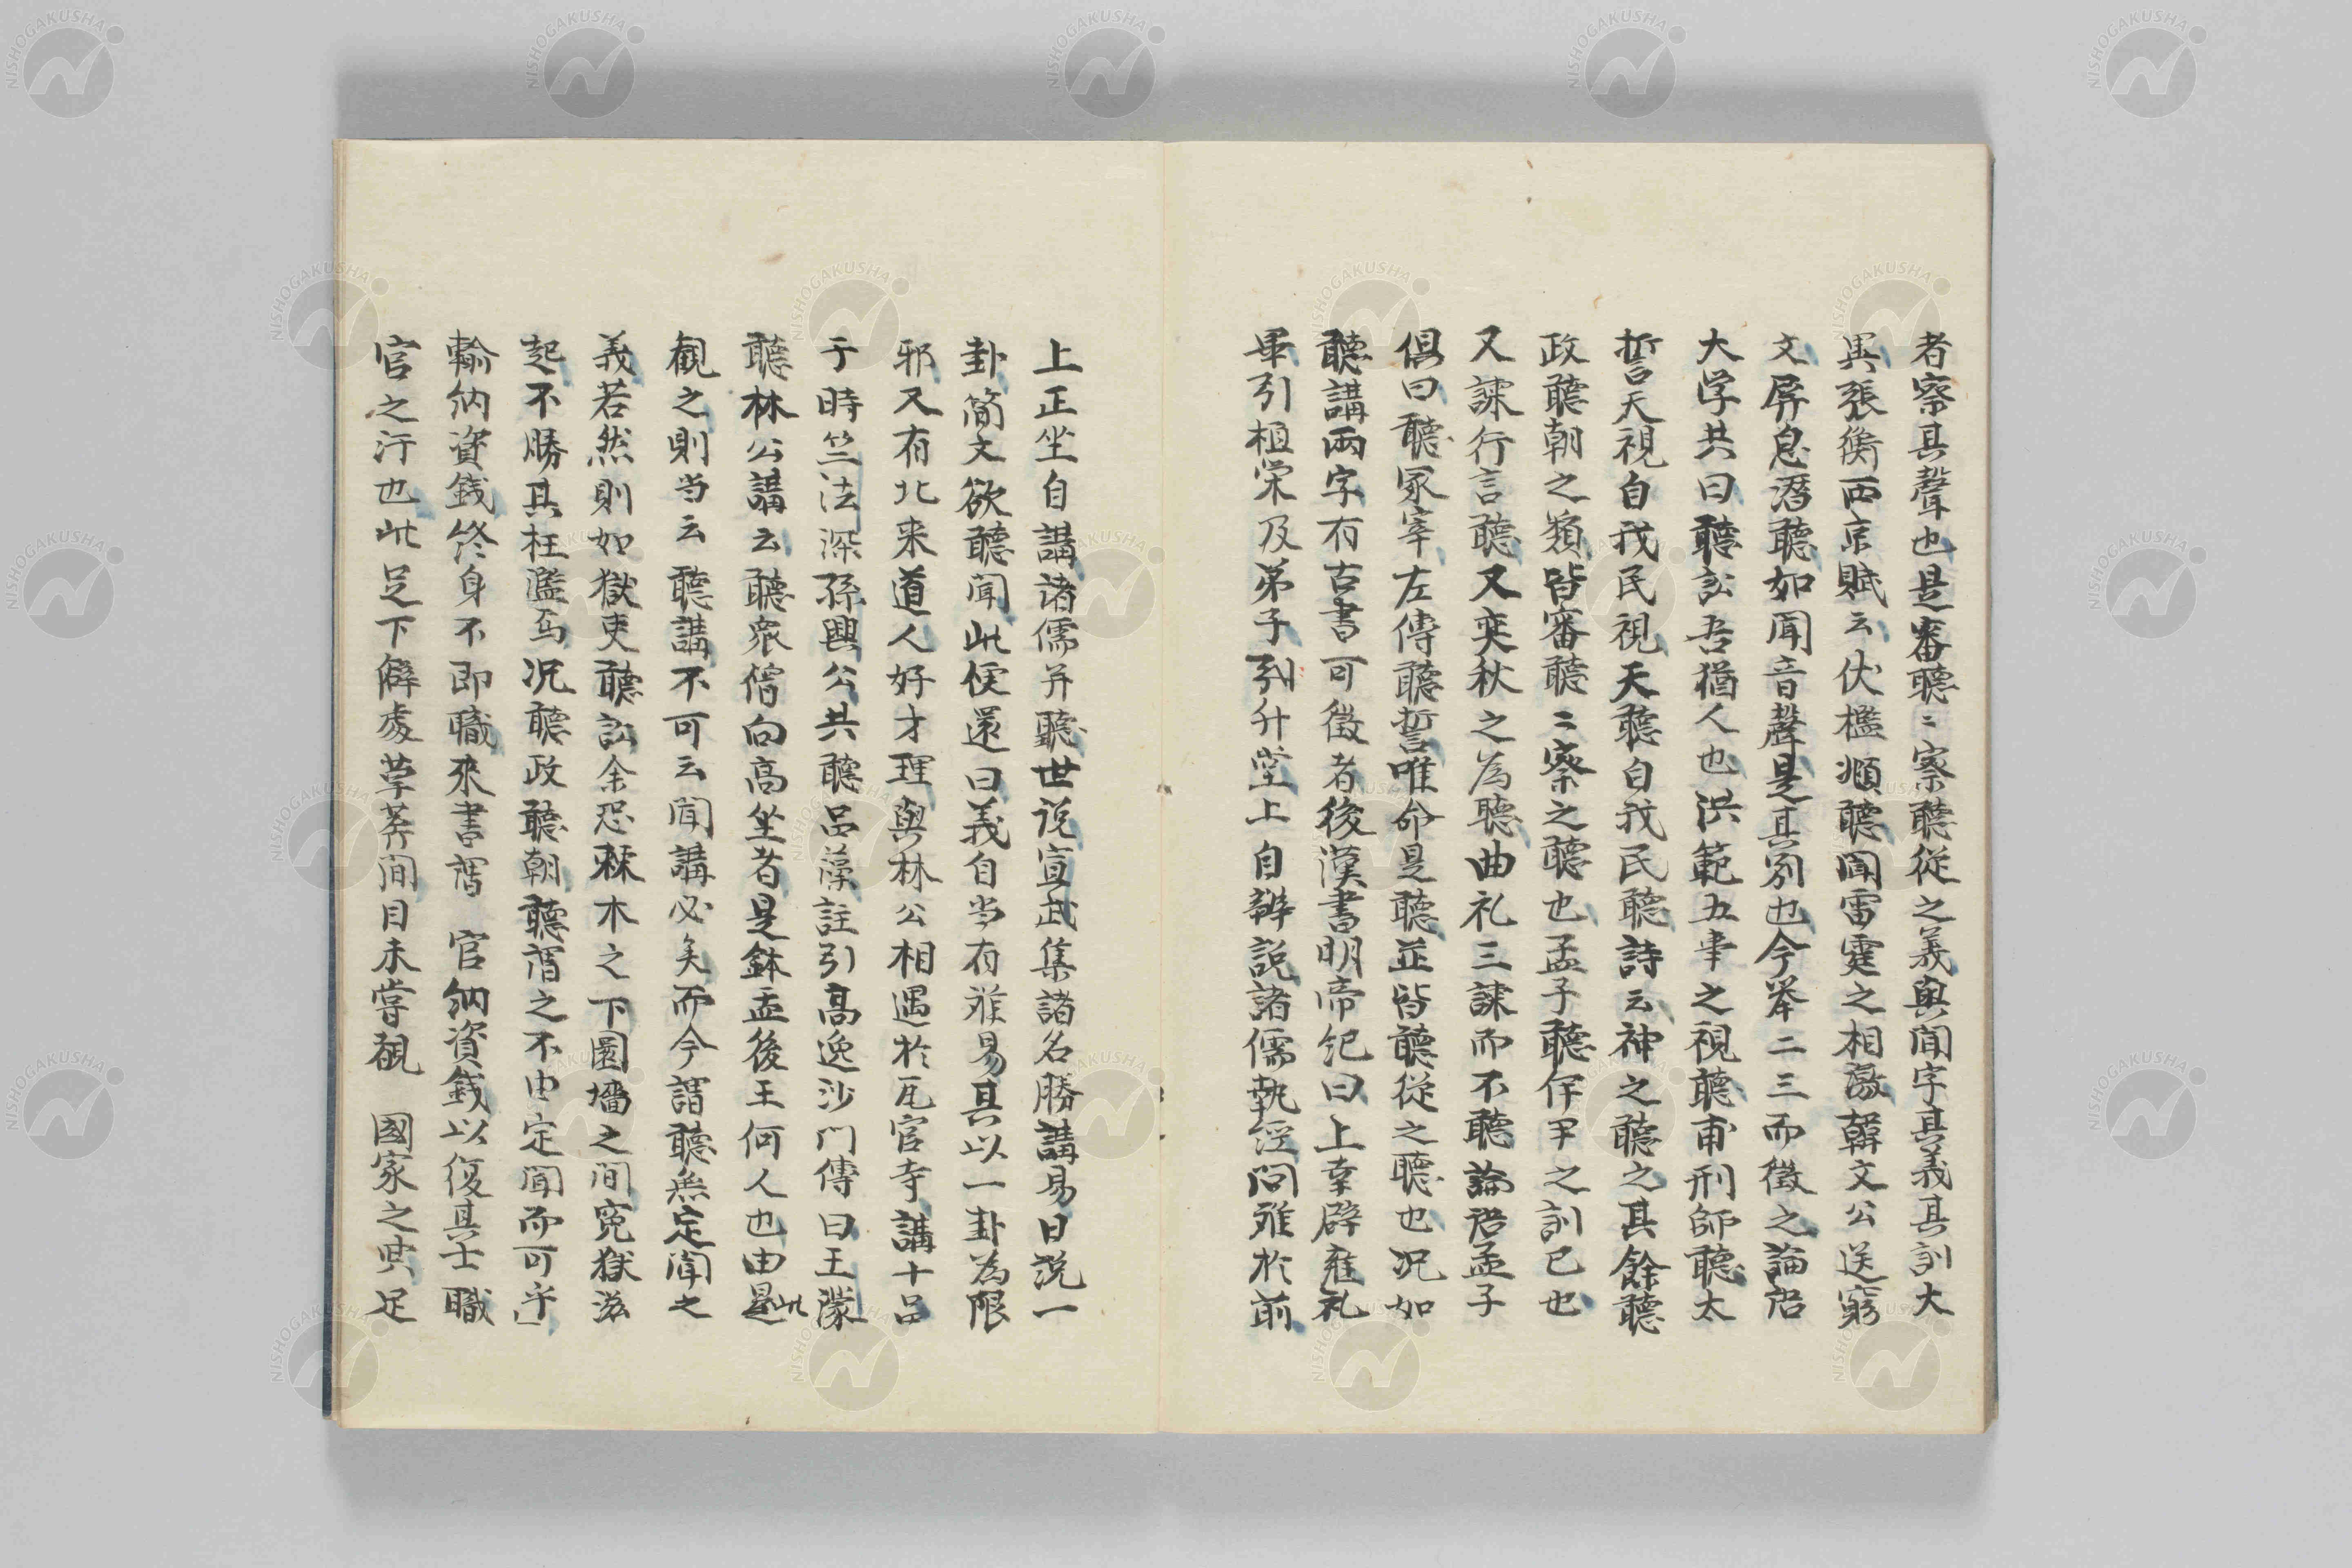 者察其聲也是審聽〻察聽從之義與聞字其義其訓大
異張衡西京賦云伏檻頫聽聞雷霆之相激韓文公送窮
文屏息潛聽如聞音聲是其別也今举二三而徵之論語
大学共曰聽訟吾猶人也洪範五事之視聽甫刑師聽太
誓天視自我民視天聽自我民聽詩云神之聽之其餘聽
政聽朝之類皆審聽〻察之聽也孟子聽伊尹之訓已也
又諫行言聽又奕秋之為聽曲礼三諫而不聽論語孟子
俱曰聽冢宰左傳聽誓唯命是聽並皆聽從之聽也况如
聽講両字有古書可徵者後漢書明帝紀曰上幸辟雍礼
畢引桓栄及弟子列升堂上自辦説諸儒執経問难於前
上正坐自講諸儒并聽世説宣武集諸名勝講易日説一
卦简文欲聽聞此便還曰義自当有难易其以一卦為限
邪又有北来道人好才理與林公相遇於瓦官寺講十品
于時竺法深孫興公共聽品藻註引高逸沙门傳曰王濛
聽林公講云聽衆僧向高坐者是鉢盂後王何人也由是此
観之則当云聽講不可云聞講必矣而今謂聽無定聞之
義若然則如獄吏聽訟余恐棘木之下圜墻之间寃獄滋
起不勝其枉濫焉况聽政聽朝聽謂之不由定聞而可乎
輸納資銭終身不即職来書謂 官納資銭以復其士職
官之汙也此足下僻處草莽间目未嘗覩 國家之典足
NISHOGAKUSHA